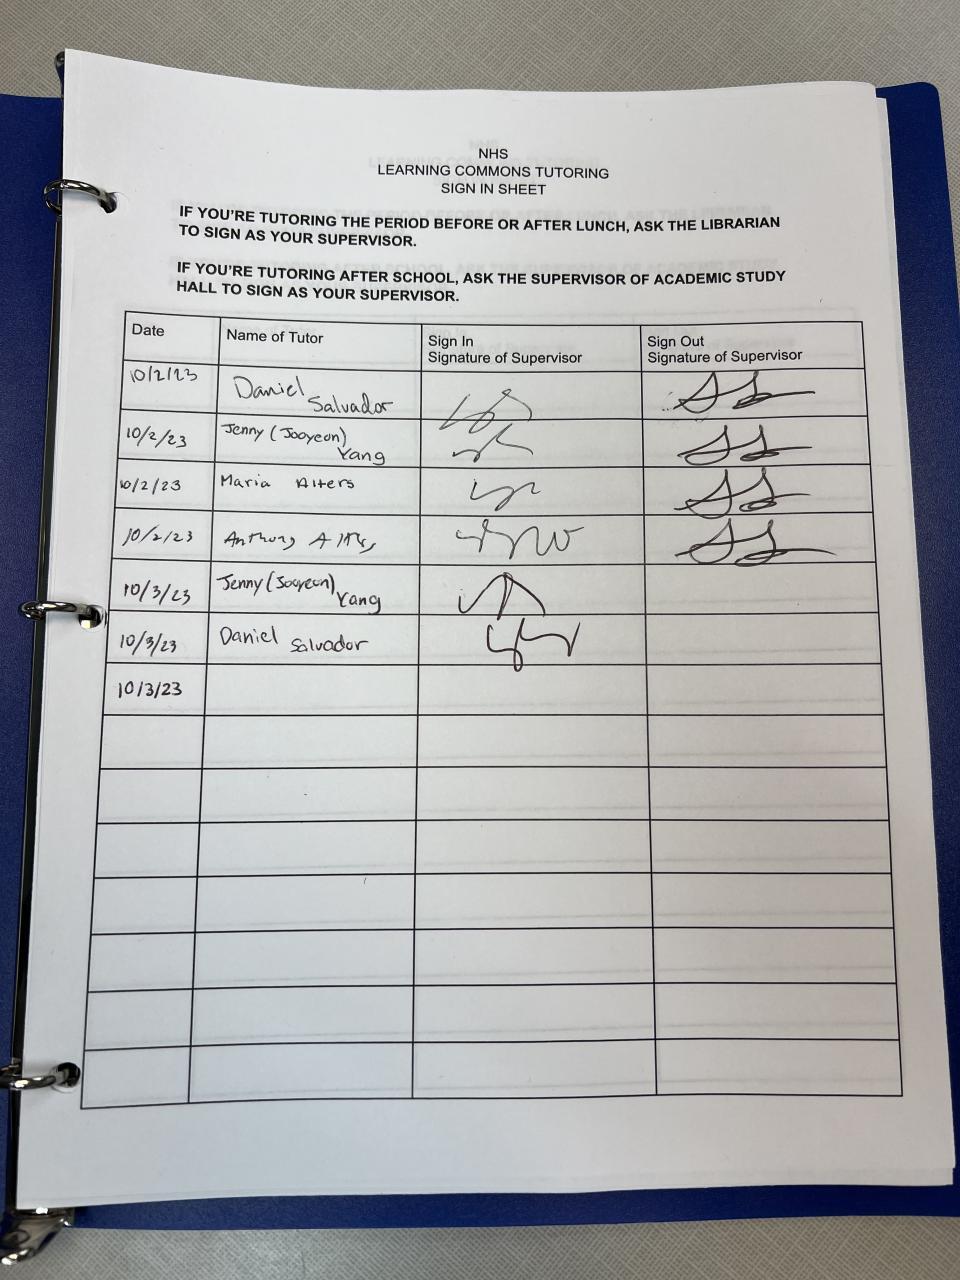 NHS
LEARNING COMMONS TUTORING
SIGN IN SHEET
IF YOU'RE TUTORING THE PERIOD BEFORE OR AFTER LUNCH, ASK THE LIBRARIAN
TO SIGN AS YOUR SUPERVISOR.
IF YOU'RE TUTORING AFTER SCHOOL, ASK THE SUPERVISOR OF ACADEMIC STUDY
HALL TO SIGN AS YOUR SUPERVISOR.
Date
Name of Tutor
Sign In
Signature of Supervisor
Sign Out
Signature of Supervisor
10/2/23
Daniel
Salvador
10/2/23
Jenny (Jooyeon)
Yang
10/2/23
Maria Alters
10/2/23
Anthony
10/3/23
Jenny (Jooyeon)
Yang
10/3/23
Daniel Salvador
10/3/23